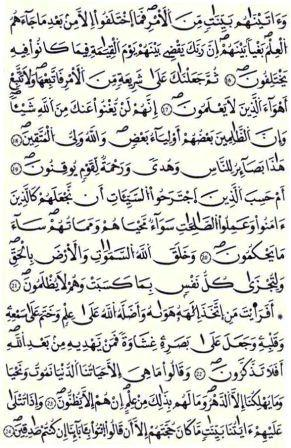 وَءَاتَيْنَٰهُم بَيِّنَٰتٍ مِّنَ ٱلْأَمْرِ فَمَا ٱخْتَلَفُوٓا۟ إِلَّا مِنۢ بَعْدِ مَا جَآءَهُمُ
ٱلْعِلْمُ بَغْيًۢا بَيْنَهُمْ إِنَّ رَبَّكَ يَقْضِى بَيْنَهُمْ يَوْمَ ٱلْقِيَٰمَةِ فِيمَا كَانُوا۟ فِيهِ
يَخْتَلِفُونَ ثُمَّ جَعَلْنَٰكَ عَلَىٰ شَرِيعَةٍ مِّنَ ٱلْأَمْرِ فَٱتَّبِعْهَا وَلَا تَتَّبِعْ
أَهْوَآءَ ٱلَّذِينَ لَا يَعْلَمُونَ إِنَّهُمْ لَن يُغْنُوا۟ عَنكَ مِنَ ٱللَّهِ شَيْـًٔا
وَإِنَّ ٱلظَّٰلِمِينَ بَعْضُهُمْ أَوْلِيَآءُ بَعْضٍ وَٱللَّهُ وَلِىُّ ٱلْمُتَّقِينَ
هَٰذَا بَصَٰٓئِرُ لِلنَّاسِ وَهُدًى وَرَحْمَةٌ لِّقَوْمٍ يُوقِنُونَ
أَمْ حَسِبَ ٱلَّذِينَ ٱجْتَرَحُوا۟ ٱلسَّيِّـَٔاتِ أَن نَّجْعَلَهُمْ كَٱلَّذِينَ
ءَامَنُوا۟ وَعَمِلُوا۟ ٱلصَّٰلِحَٰتِ سَوَآءً مَّحْيَاهُمْ وَمَمَاتُهُمْ سَآءَ
مَا يَحْكُمُونَ وَخَلَقَ ٱللَّهُ ٱلسَّمَٰوَٰتِ وَٱلْأَرْضَ بِٱلْحَقِّ
وَلِتُجْزَىٰ كُلُّ نَفْسٍۭ بِمَا كَسَبَتْ وَهُمْ لَا يُظْلَمُونَ
أَفَرَءَيْتَ مَنِ ٱتَّخَذَ إِلَٰهَهُۥ هَوَىٰهُ وَأَضَلَّهُ ٱللَّهُ عَلَىٰ عِلْمٍ وَخَتَمَ عَلَىٰ سَمْعِهِۦ
وَقَلْبِهِۦ وَجَعَلَ عَلَىٰ بَصَرِهِۦ غِشَٰوَةً فَمَن يَهْدِيهِ مِنۢ بَعْدِ ٱللَّهِ
أَفَلَا تَذَكَّرُونَ وَقَالُوا۟ مَا هِىَ إِلَّا حَيَاتُنَا ٱلدُّنْيَا نَمُوتُ وَنَحْيَا
وَمَا يُهْلِكُنَآ إِلَّا ٱلدَّهْرُ وَمَا لَهُم بِذَٰلِكَ مِنْ عِلْمٍ إِنْ هُمْ إِلَّا يَظُنُّونَ وَإِذَا تُتْلَىٰ
عَلَيْهِمْ ءَايَٰتُنَا بَيِّنَٰتٍ مَّا كَانَ حُجَّتَهُمْ إِلَّآ أَن قَالُوا۟ ٱئْتُوا۟ بِـَٔابَآئِنَآ إِن كُنتُمْ صَٰدِقِينَ